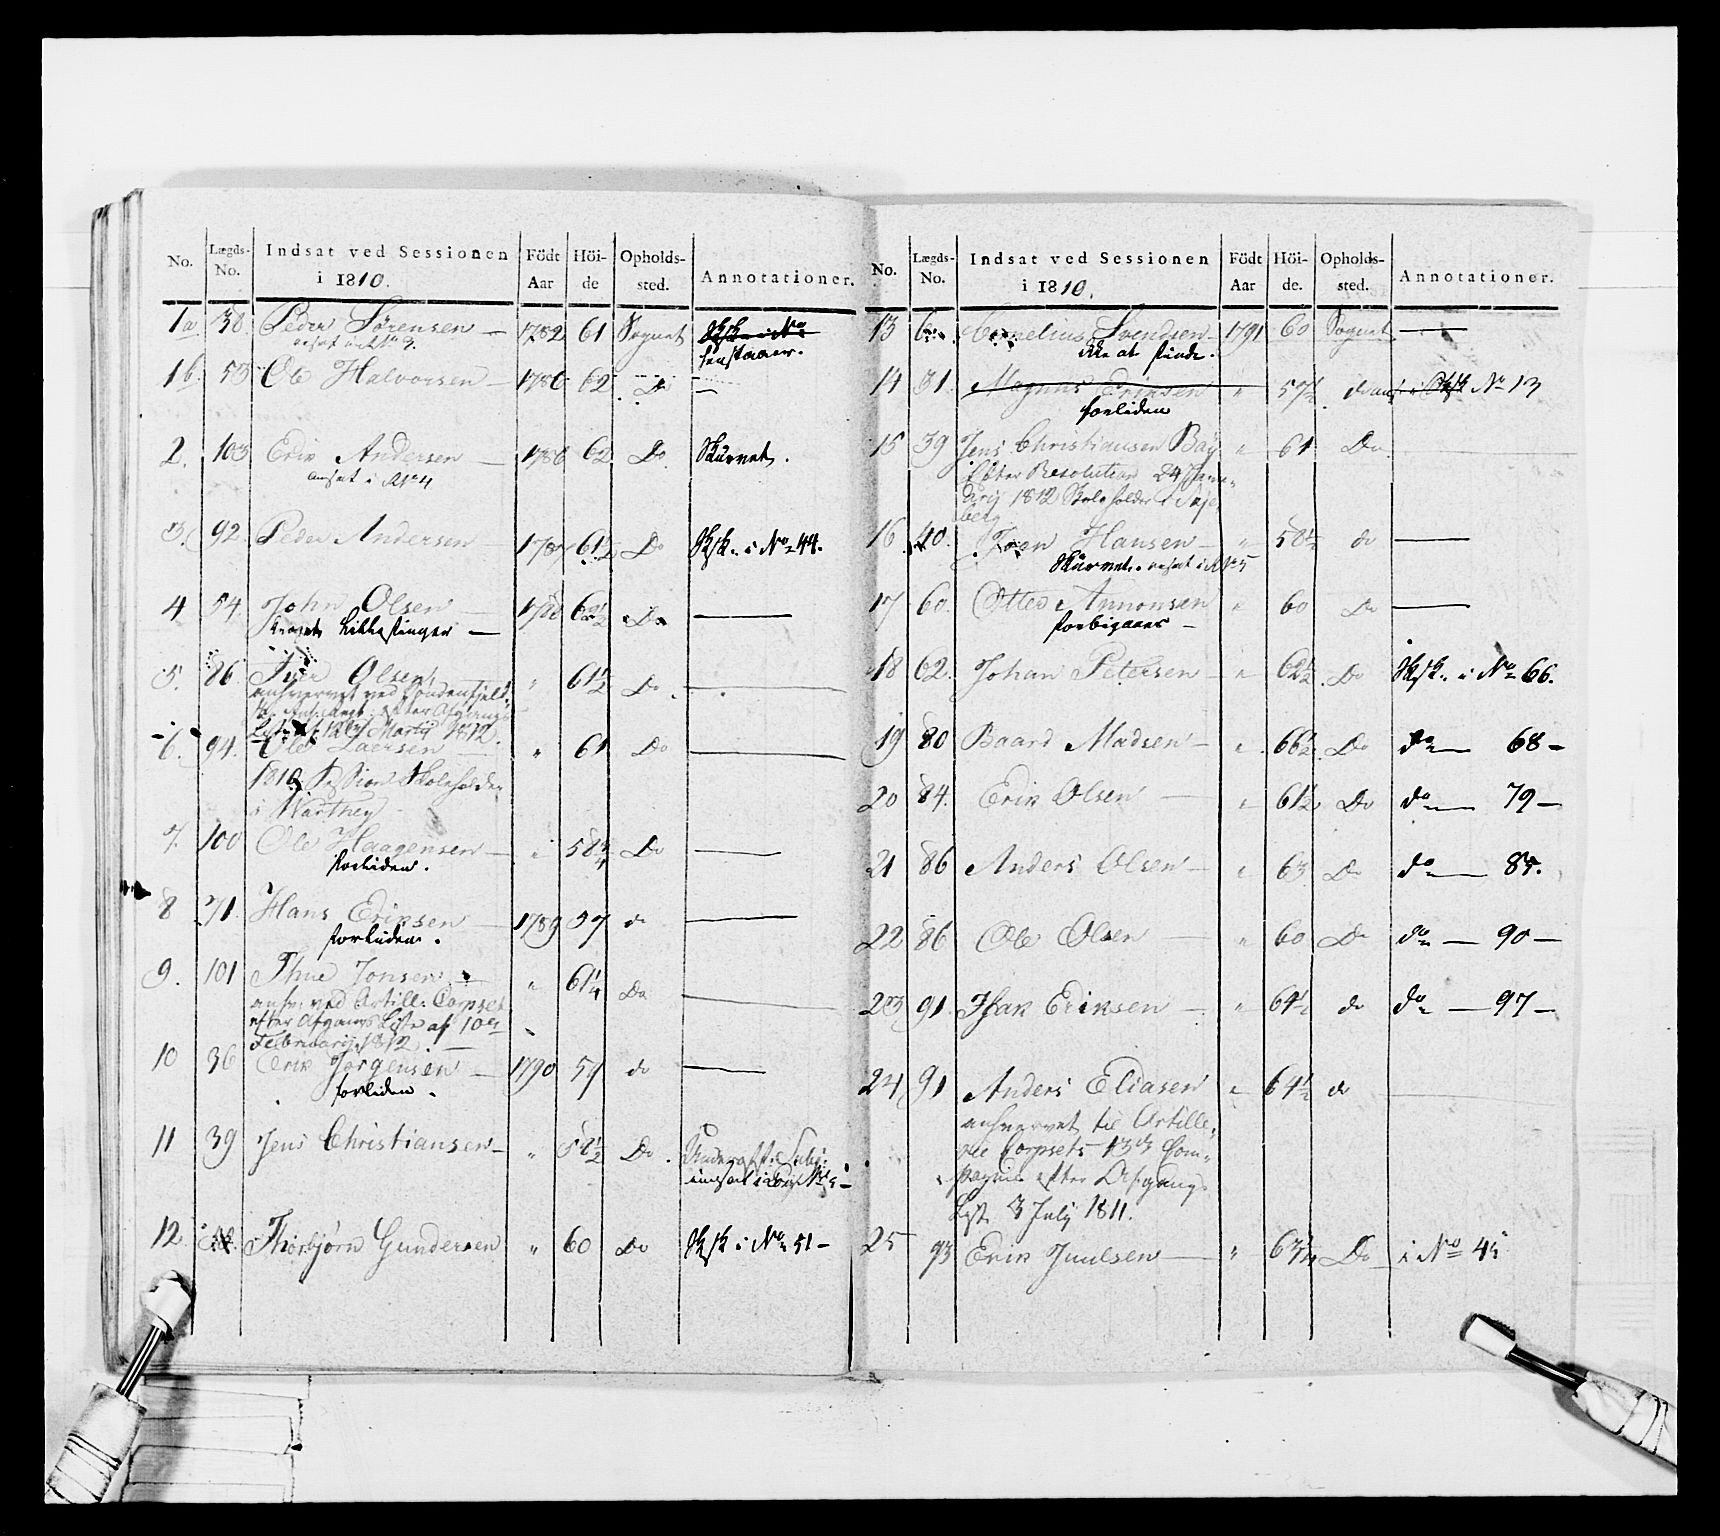 No. Lægds-No. Indsat ved Sessionen i 1810. Födt Aar Höi-de Opholds-sted. Annotationer.
1a 38 Peder Sörensen — 1782 61 Sognet
henstaaer.
1b. 53 Ole Halvorsen — 1786 62 Do —
2. 103 Erik Andersen — 1786 62 Do Skurvet.
ansat i No 4
3. 92 Peder Andersen — 1787 61½ Do Skk. i No 44.
4 54 John Olsen — 1788 62½ Do —
Lillefinger —
5. 86 Iver Olsen — " 61½ Do. —
anhvervet ved Söndenfield
Liste af Marty 1812.
6. 94 Ole Laersen " 61 Do —
1810 Session Skoleholder
i
7. 100 Ole Haagensen — " 58¾ Do —
forliden.
8 71. Hans Eriksen — 1789 57 do —
forliden.
9. 101 Thue Jonsen — " 61¼ Do —
anhv. ved Artill. Corpset
efter Afgangs Liste af 10de
Februarij 1812. —
10 36 Erik Jörgensen — 1790 59 do —
forliden.
11 39 Jens Christiansen — " 58½ Do.
12. Thorbjörn Gundersen " 60 Do Skk i No 51 —
No. Lægds-No. Indsat ved Sessionen i 1810. Födt Aar Höi-de. Opholds-sted. Annotationer.
13 Cornelius Svendsen — 1791 60 Sognet —
ikke at finde.
14 31. Magnus Eriksen " 57½ do No 13
forliden
15 39 Jens Christiansen Bay " 61 Do
Efter Resolution 24 Janu-
arij 1812 Skoleholder i Skje-
berg
16 40. Joen Hansen — " 58½ do —
Skurvet.
17 60. Otter Amonsen " 60 Do —
forbigaaer —
18 62. Johan Petersen — " 62½ Do Skk. i No 66.
19 80 Baard Madsen — " 66½ Do do — 68 —
20 84. Erik Olsen — " 61½ Do do — 79 —
21 86 Anders Olsen — " 63 Do do — 85.
22 86 Ole Olsen — " 60 Do do — 90 —
23 91. Isak Eriksen — " 64½ do do — 97 —
24 91 Anders Eliasen " 64½ do —
anhvervet til Artille-
rie Corpsets 13de Com-
pagnie efter Afgangs
List. 3 July 1811.
25 93 Erik Juulsen — " 63¾ Do i No 45